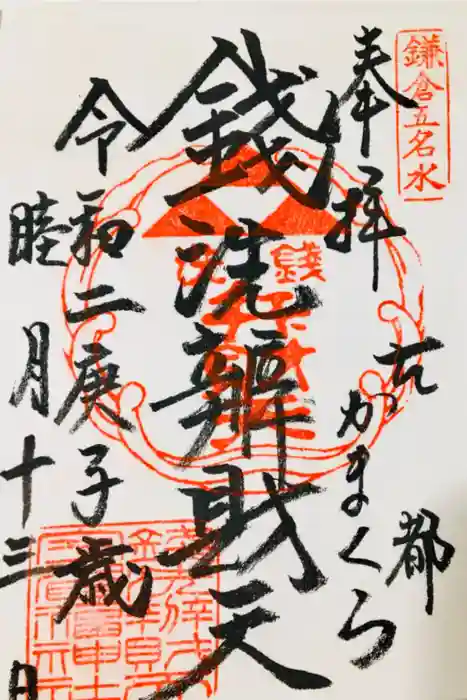 鎌倉五名水
奉拝
古都
かまくら
銭洗辨財天
令和二庚子歳
睦月十三日